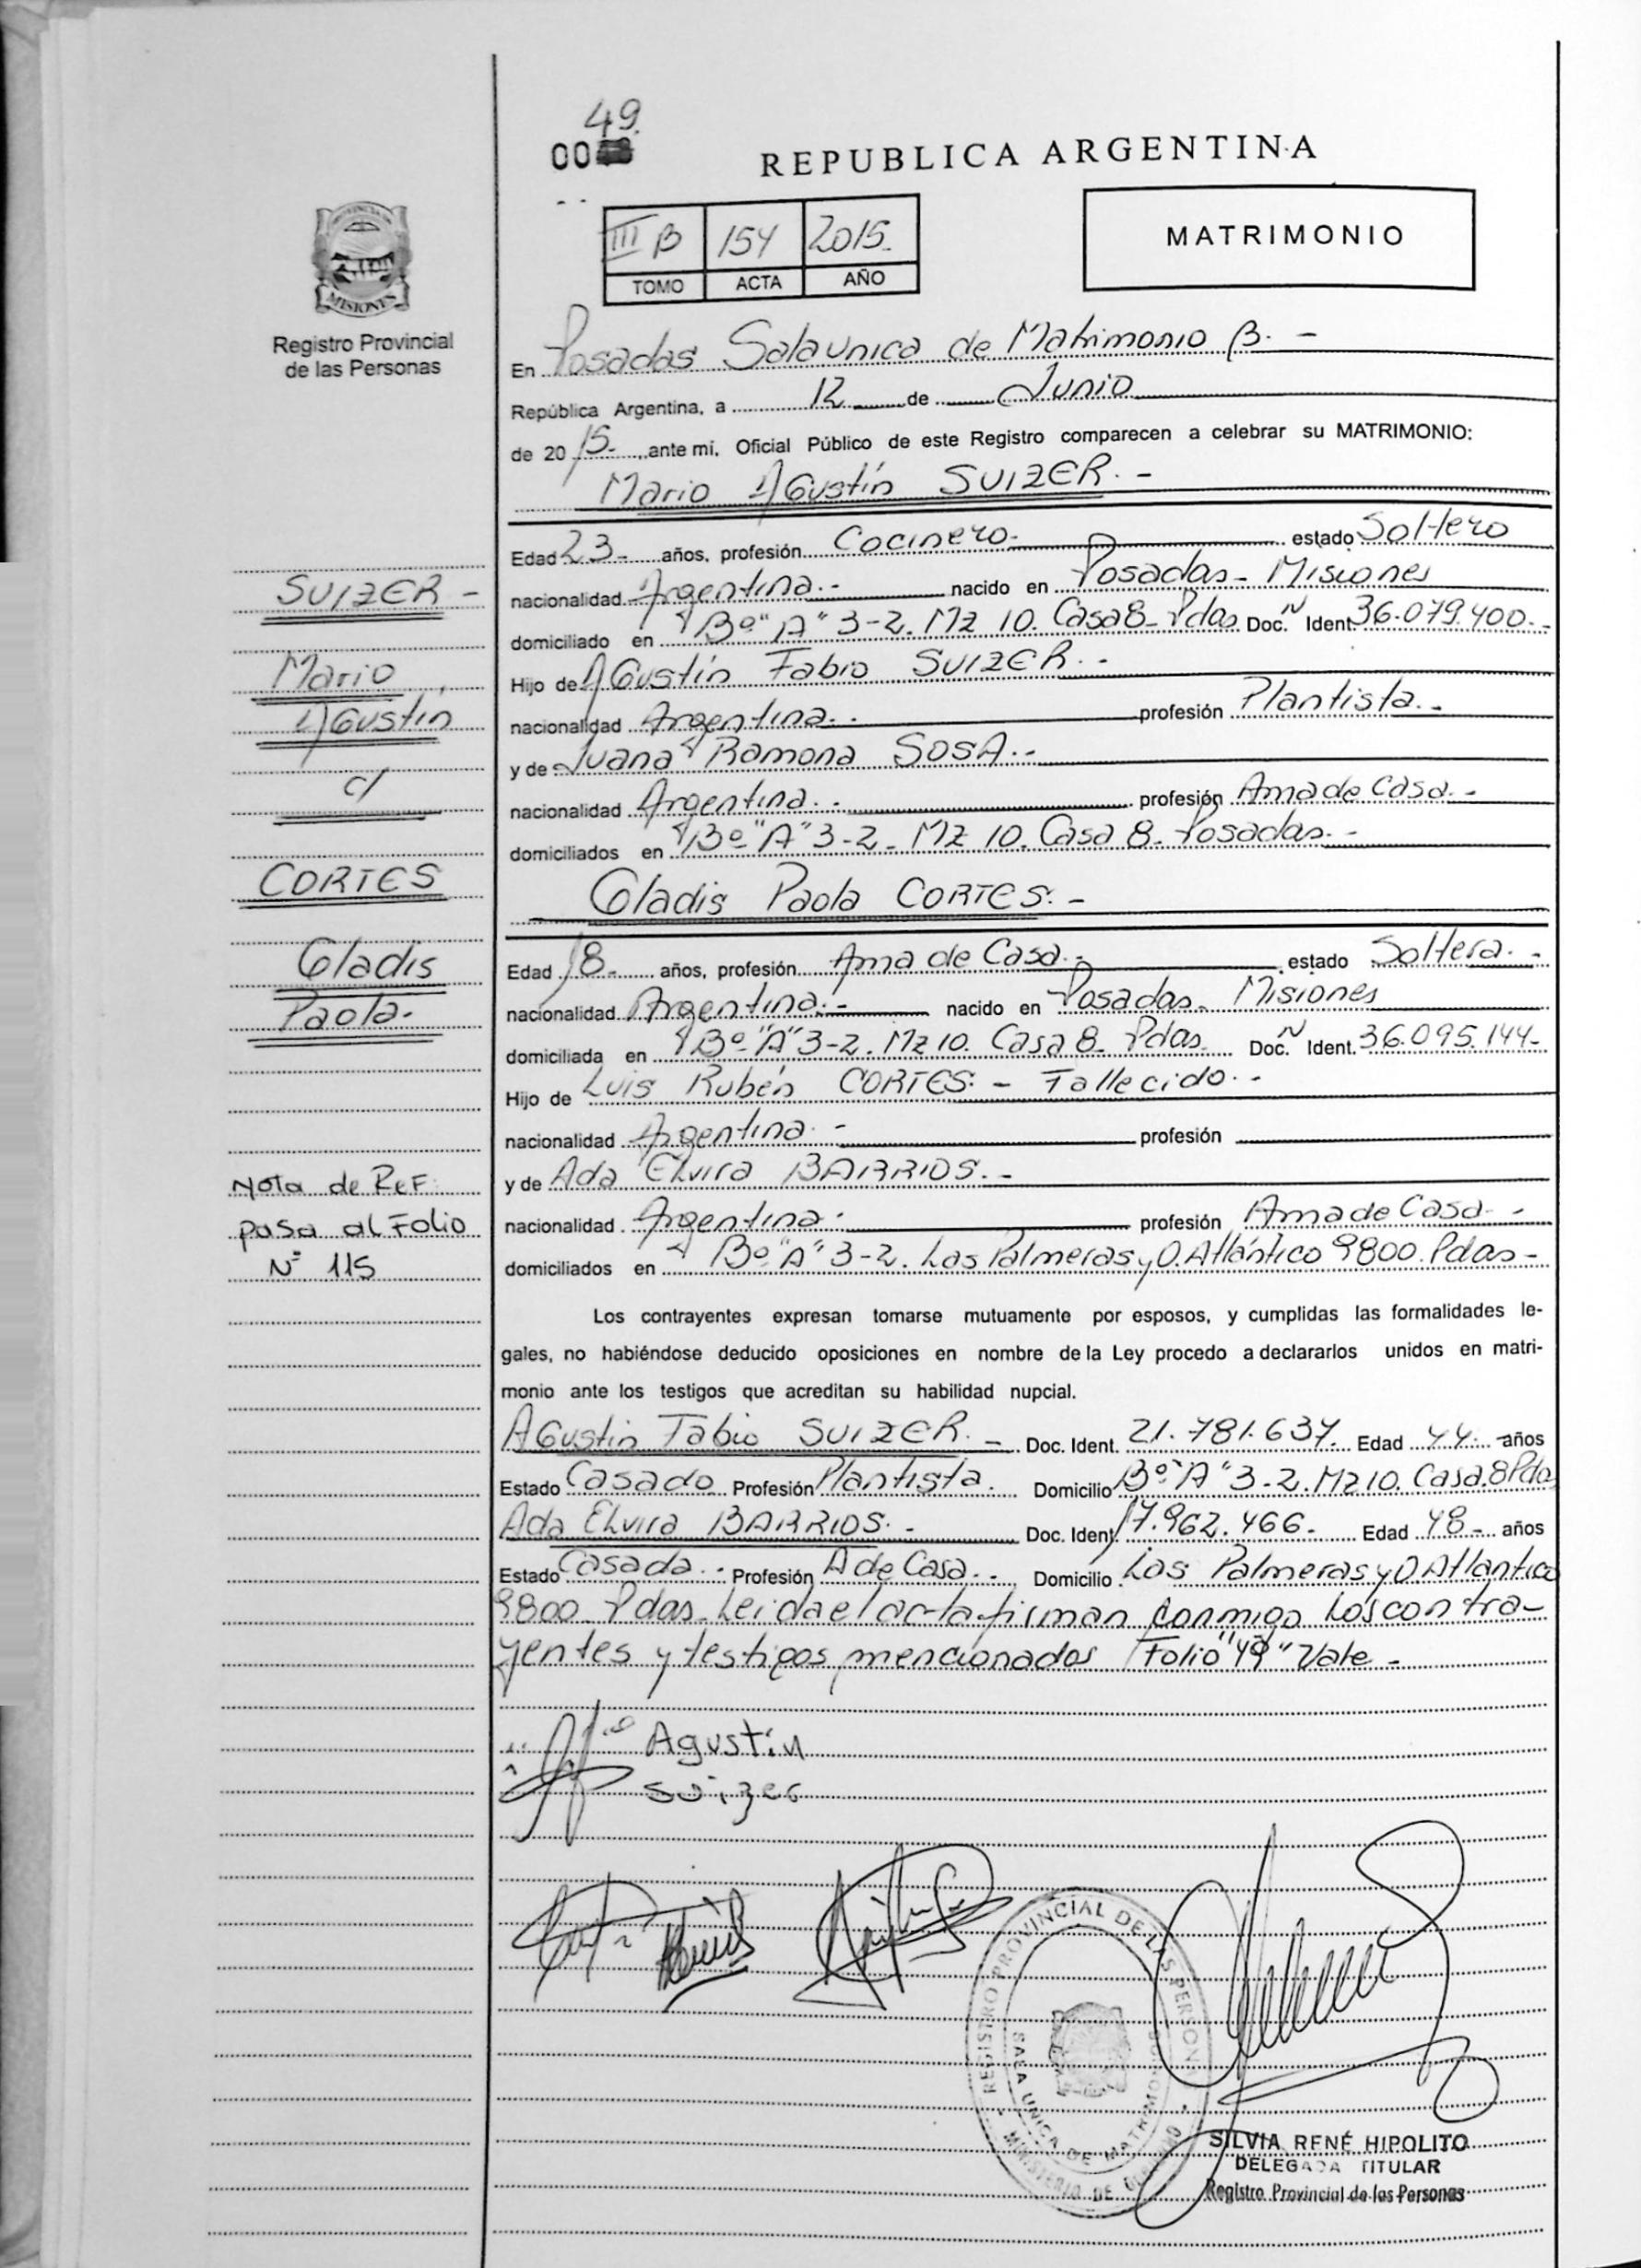 49.
00
REPUBLICA ARGENTINA
III B 154 2015.
TOMO ACTA AÑO
MATRIMONIO
PROVINCIA DE
MISIONES
Registro Provincial
de las Personas
En Posadas Sala Unica de Matrimonio B. -
República Argentina, a 12 de Junio
de 2015- , ante mi, Oficial Público de este Registro comparecen a celebrar su MATRIMONIO:
Mario Agustín SUIZER. -
Edad 23- años, profesión Cocinero- estado Soltero
nacionalidad Argentina. - nacido en Posadas - Misiones
domiciliado en Bº "A" 3-2. Mz 10. Casa 8- Pdas Doc. N Ident. 36.079.400. -
Hijo de Agustín Fabio SUIZER. -
nacionalidad Argentina. - profesión Plantista. -
y de Juana Ramona SOSA. -
nacionalidad Argentina. - profesión Ama de Casa. -
domiciliados en Bº "A" 3-2. Mz 10. Casa 8- Posadas. -
Gladis Paola CORTES. -
Edad 18- años, profesión Ama de Casa. - estado Soltera. -
nacionalidad Argentina. - nacido en Posadas - Misiones
domiciliada en Bº "A" 3-2. Mz 10. Casa 8- Pdas. Doc. N Ident. 36.095.144-
Hijo de Luis Rubén CORTES. - Fallecido. -
nacionalidad Argentina. - profesión
y de Ada Elvira BARRIOS. -
nacionalidad Argentina. profesión Ama de Casa. -
domiciliados en Bº "A" 3-2. Las Palmeras y O. Atlántico 9800. Pdas -
Los contrayentes expresan tomarse mutuamente por esposos, y cumplidas las formalidades le-
gales, no habiéndose deducido oposiciones en nombre de la Ley procedo a declararlos unidos en matri-
monio ante los testigos que acreditan su habilidad nupcial.
Agustin Fabio SUIZER. - Doc. Ident. 21.781.637. Edad 44. años
Estado Casado Profesión Plantista. Domicilio Bº "A" 3-2. Mz 10. Casa. 8 Pda
Ada Elvira BARRIOS. - Doc. Ident. 17.962.466- Edad 48- años
Estado Casada. - Profesión A de Casa. - Domicilio Las Palmeras y O. Atlantico
9800 Pdas. Leida el acta firman conmigo los contra-
yentes y testigos mencionados Folio "49" Vale -
SUIZER -
Mario
Agustín
c/
CORTES
Gladis
Paola.
Nota de Ref.
pasa al Folio
Nº 115
Agustin
Suizer
REGISTRO PROVINCIAL DE LAS PERSONAS
SALA UNICA DE MATRIMONIO
MINISTERIO DE GOBIERNO
SILVIA RENÉ HIPOLITO
DELEGADA TITULAR
Registro Provincial de las Personas